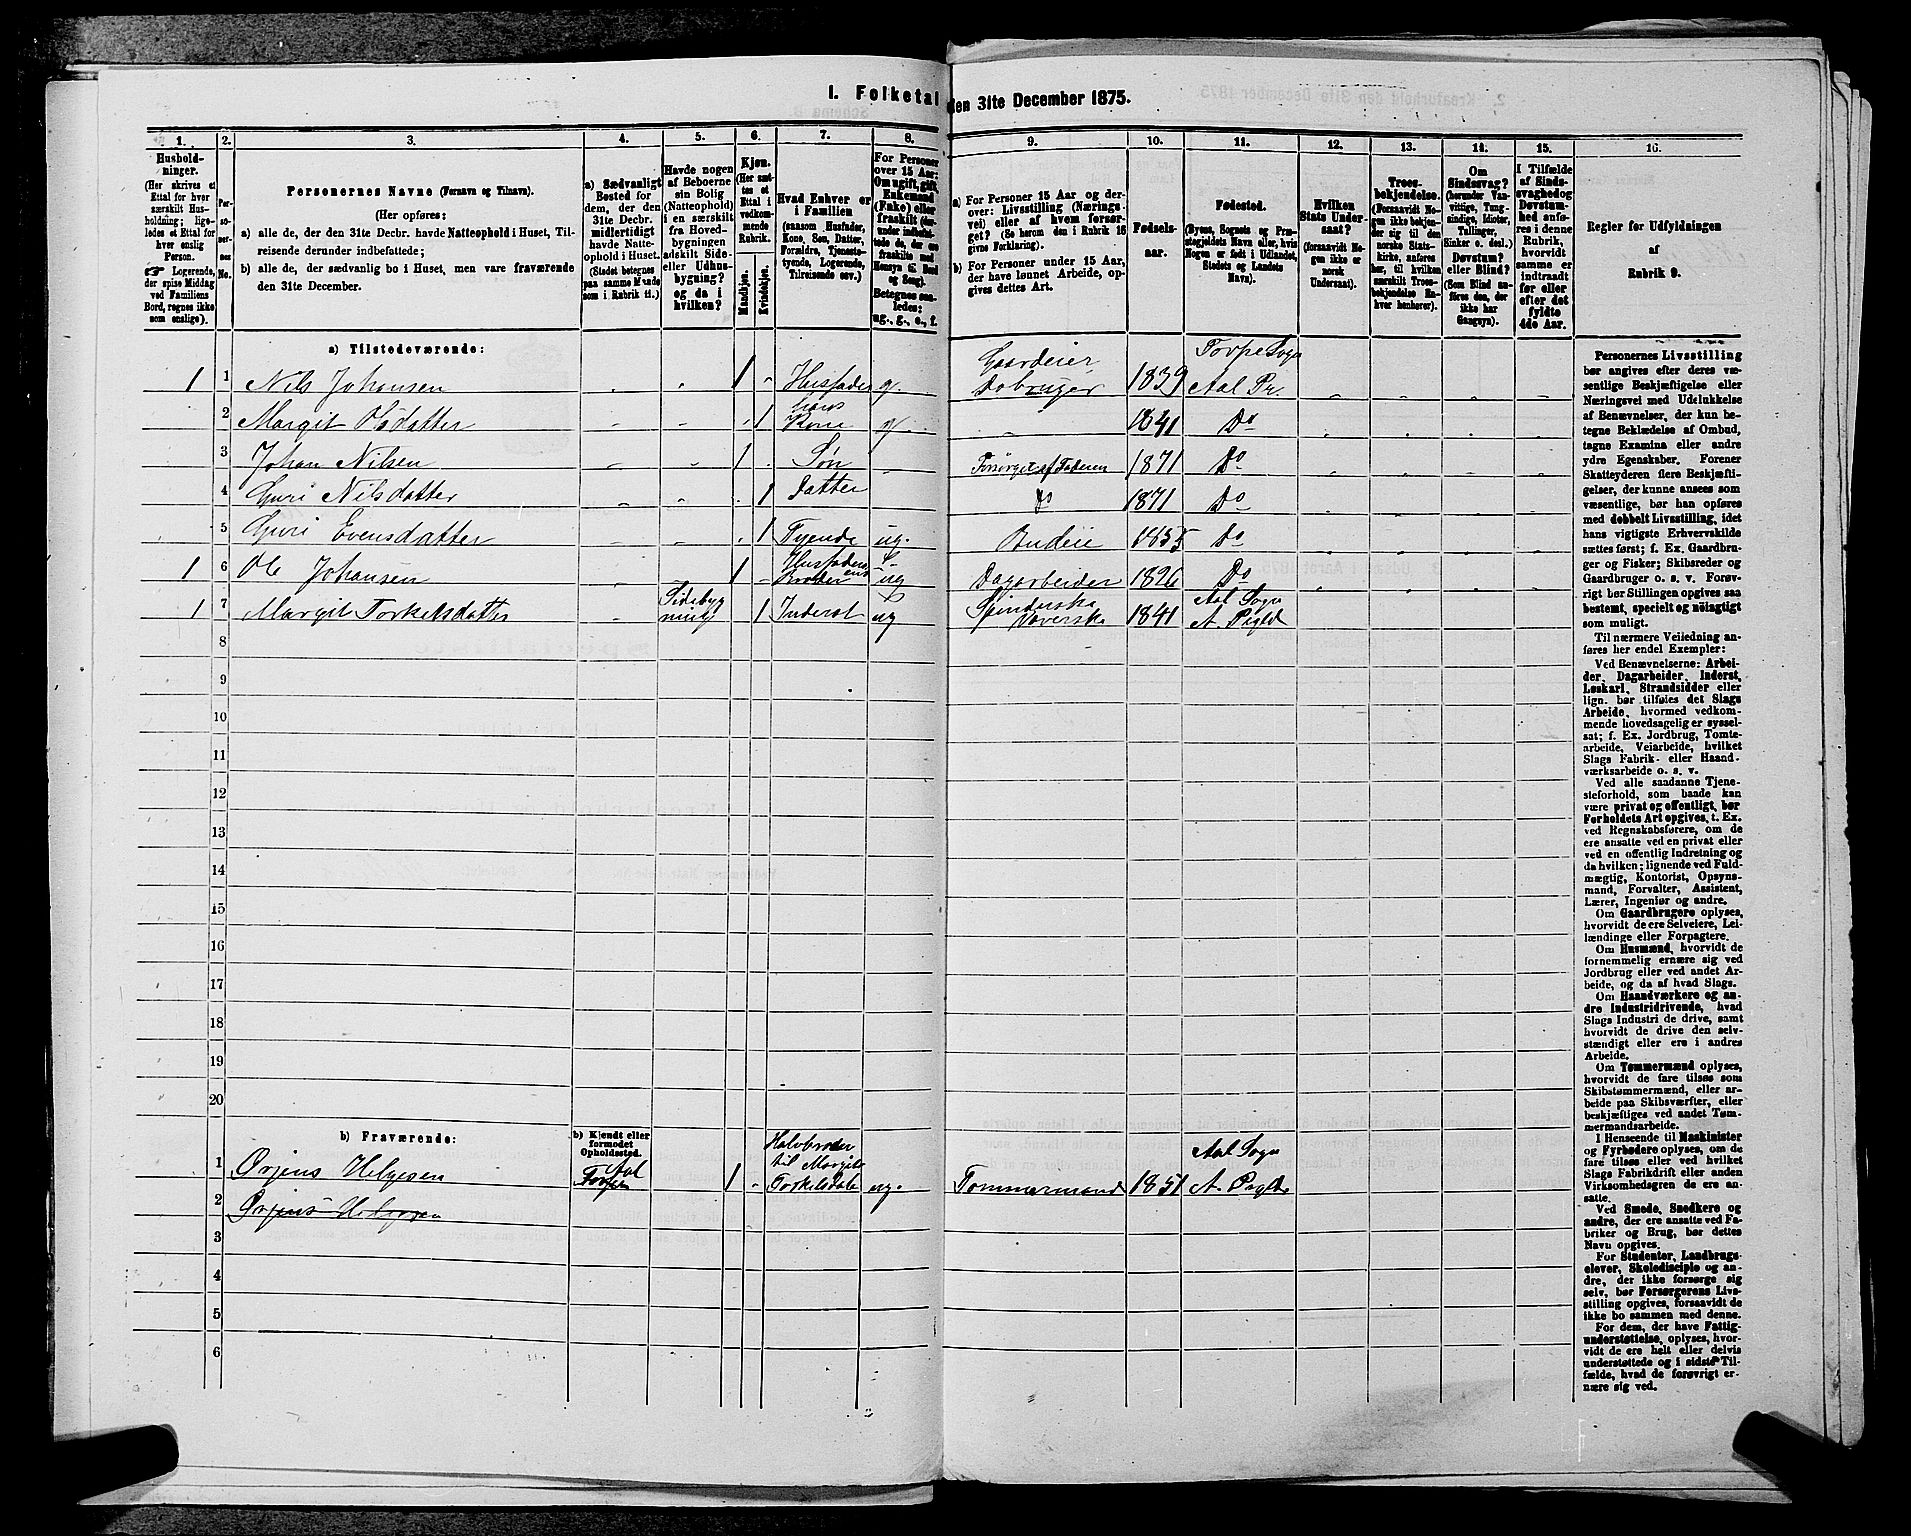 I. Folketal den 31te December 1875.
1. 2. 3. 4. 5. 6. 7. 8. 9. 10. 11. 12. 13. 14. 15. 16.
Hushold-
ninger.
(Her skrives et
Ettal for hver
særskilt Hus-
holdning; lige-
ledes et Ettal for
hver enslig
Person.
☞ Logerende,
der spise Middag
ved Familiens
Bord, regnes ikke
som enslige).
Per-
so-
ner-
nes
No.
Personernes Navne (Fornavn og Tilnavn).
(Her opføres:
a) alle de, der den 31te Decbr. havde Natteophold i Huset, Til-
reisende derunder indbefattede;
b) alle de, der sædvanlig bo i Huset, men vare fraværende
den 31te December.
a) Sædvanligt
Bosted for
dem, der den
31te Decbr.
midlertidigt
havde Natte-
ophold i Huset.
(Stedet betegnes
paa samme Maade
som i Rubrik 11.)
Havde nogen
af Beboerne
sin Bolig
(Natteophold)
i en særskilt
fra Hoved-
bygningen
adskilt Side-
eller Udhus-
bygning?
og da i
hvilken?
Kjøn.
(Her sæt-
tes et
Ettal i
vedkom-
mende
Rubrik.
Mandkjøn.
Kvindekjøn.
Hvad Enhver er
i Familien
(saasom Husfader,
Kone, Søn, Datter,
Forældre, Tjeneste-
tyende, Logerende,
Tilreisende osv.)
For Personer
over 15 Aar:
Om ugift, gift,
Enkemand
(Enke) eller
fraskilt (her-
under indbefat-
tede de, der ere
fraskilte med
Hensyn til Bord
og Seng).
Betegnes saa-
ledes:
ug., g., e., f.
a) For Personer 15 Aar og der-
over: Livsstilling (Nærings-
vei) eller af hvem forsør-
get? (Se herom den i Rubrik 16
givne Forklaring).
b) For Personer under 15 Aar,
der have lønnet Arbeide, op-
gives dettes Art.
Fødsels-
aar.
Fødested.
(Byens, Sognets og Præ-
stegjeldets Navn eller, hvis
Nogen er født i Udlandet,
Stedets og Landets
Navn).
Hvilken
Stats Under-
saat?
(forsaavidt No-
gen ikke er
norsk
Undersaat).
Troes-
bekjendelse.
(Forsaavidt No-
gen ikke bekjen-
der sig til den
norske Stats-
kirke, anføres
her, til hvilken
særskilt Troes-
bekjendelse En-
hver henhører).
Om
Sindssvag?
(herunder Van-
vittige, Tung-
sindige, Idioter,
Tullinger,
Sinker o. desl.)
Døvstum?
eller Blind?
(Som Blind an-
føres den, der
ikke har
Gangsyn).
I Tilfælde
af Sinds-
svaghed og
Døvstum-
hed anfø-
res i denne
Rubrik,
hvorvidt
samme er
indtraadt
før eller
efter det
fyldte
4de Aar.
Regler for Udfyldningen
af
Rubrik 9.
a) Tilstedeværende:
1 1 Nils Johansen 1 Husfader g. Gaardeier Do bruger 1839 Torpe Sogn Aal Pr.
2 Margit Olsdatter 1 hans Kone g 1841 Do
3 Johan Nilsen 1 Søn Forsørget af Faderen 1871 Do
4 Guri Nilsdatter 1 Datter Do 1871 Do
5 Guri Evensdatter 1 Tyende ug. Budeie 1855 Do
1 6 Ole Johansen 1 Husfaderens Broder ug Dagarbeider 1826 Do
1 7 Margit Torkelsdatter Sidebygning 1 Inderst ug Spinderske Væverske 1841 Aal Sogn A. Pgld
8
9
10
11
12
13
14
15
16
17
18
19
20
b) Fraværende:
b) Kjendt eller
formodet
Opholdssted.
1 Ørjens Helgesen Aal Torpe 1 Halvbroder til Margit Torkelsdatr ug. Tømmermand 1851 Aal Sogn A. Pgld
2 Ørjens Helgesen
3
4
5
6
Personernes Livsstilling
bør angives efter deres væ-
sentlige Beskjæftigelse eller
Næringsvei med Udelukkelse
af Benævnelser, der kun be-
tegne Beklædelse af Ombud,
tagne Examina eller andre
ydre Egenskaber. Forener
Skatteyderen flere Beskjæfti-
gelser, der kunne ansees som
væsentlige, bør han opføres
med dobbelt Livsstilling, idet
hans vigtigste Erhvervskilde
sættes først; f. Ex. Gaardbru-
ger og Fisker; Skibsreder og
Gaardbruger o. s. v. Forøv-
rigt bør Stillingen opgives saa
bestemt, specielt og nøiagtigt
som muligt.
Til nærmere Veiledning an-
føres her endel Exempler:
Ved Benævnelserne: Arbei-
der, Dagarbeider, Inderst,
Løskarl, Strandsidder eller
lign. bør tilføies det Slags
Arbeide, hvormed vedkom-
mende hovedsagelig er syssel-
sat; f. Ex. Jordbrug, Tomte-
arbeide, Veiarbeide, hvilket
Slags Fabrik- eller Haand-
værksarbeide o. s. v.
Ved alle saadanne Tjene-
steforhold, som baade kan
være privat og offentligt, bør
Forholdets Art opgives, t. Ex.
ved Regnskabsførere, om de
ere ansatte ved en privat eller
ved en offentlig Indretning og
da hvilken; lignende ved Fuld-
mægtig, Kontorist, Opsyns-
mand, Forvalter, Assistent,
Lærer, Ingeniør og andre.
Om Gaardbrugere oplyses,
hvorvidt de ere Selveiere, Lei-
lændinge eller Forpagtere.
Om Husmænd, hvorvidt de
fornemmelig ernære sig ved
Jordbrug eller ved andet Ar-
beide, og da af hvad Slags.
Om Haandværkere og an-
dre Industridrivende, hvad
Slags Industri de drive, samt
hvorvidt de drive den selv-
stændigt eller ere i andres
Arbeide.
Om Tømmermænd oplyses,
hvorvidt de fare tilsøs som
Skibstømmermænd, eller ar-
beide paa Skibsværfter, eller
beskjæftiges ved andet Tøm-
mermandsarbeide.
I Henseende til Maskinister
og Fyrbødere oplyses, om de
fare tilsøs eller ved hvilket
Slags Fabrikdrift eller anden
Virksomhedsgren de ere an-
satte.
Ved Smede, Snedkere og
andre, der ere ansatte ved Fa-
briker og Brug, bør dettes
Navn opgives.
For Studenter, Landbrugs-
elever, Skoledisciple og an-
dre, der ikke forsørge sig
selv, bør Forsørgerens Livs-
stilling opgives, forsaavidt de
ikke bo sammen med denne.
For dem, der have Fattig-
understøttelse, oplyses, hvor-
vidt de ere helt eller delvis
understøttede og i sidste Til-
fælde, hvad de forøvrigt er-
nære sig ved.